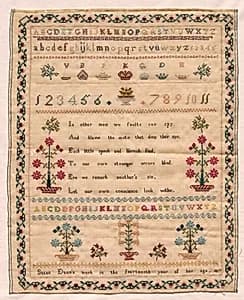 ABCDEFGHIJKLMNOPQRSTUVWXYZ
abcdefghijklmnopqrstuvwxyz
123456 7891011
In other men we faults can spy,
And blame the mote that dims their eye,
Each little speck and blemish find,
To our own stronger errors blind.
Ere we remark another's sin,
Let our own conscience look within.
ABCDEFGHIJKLMNOPQRSTUVWXYZ
Susan Dean's work in the fourteenth year of her age